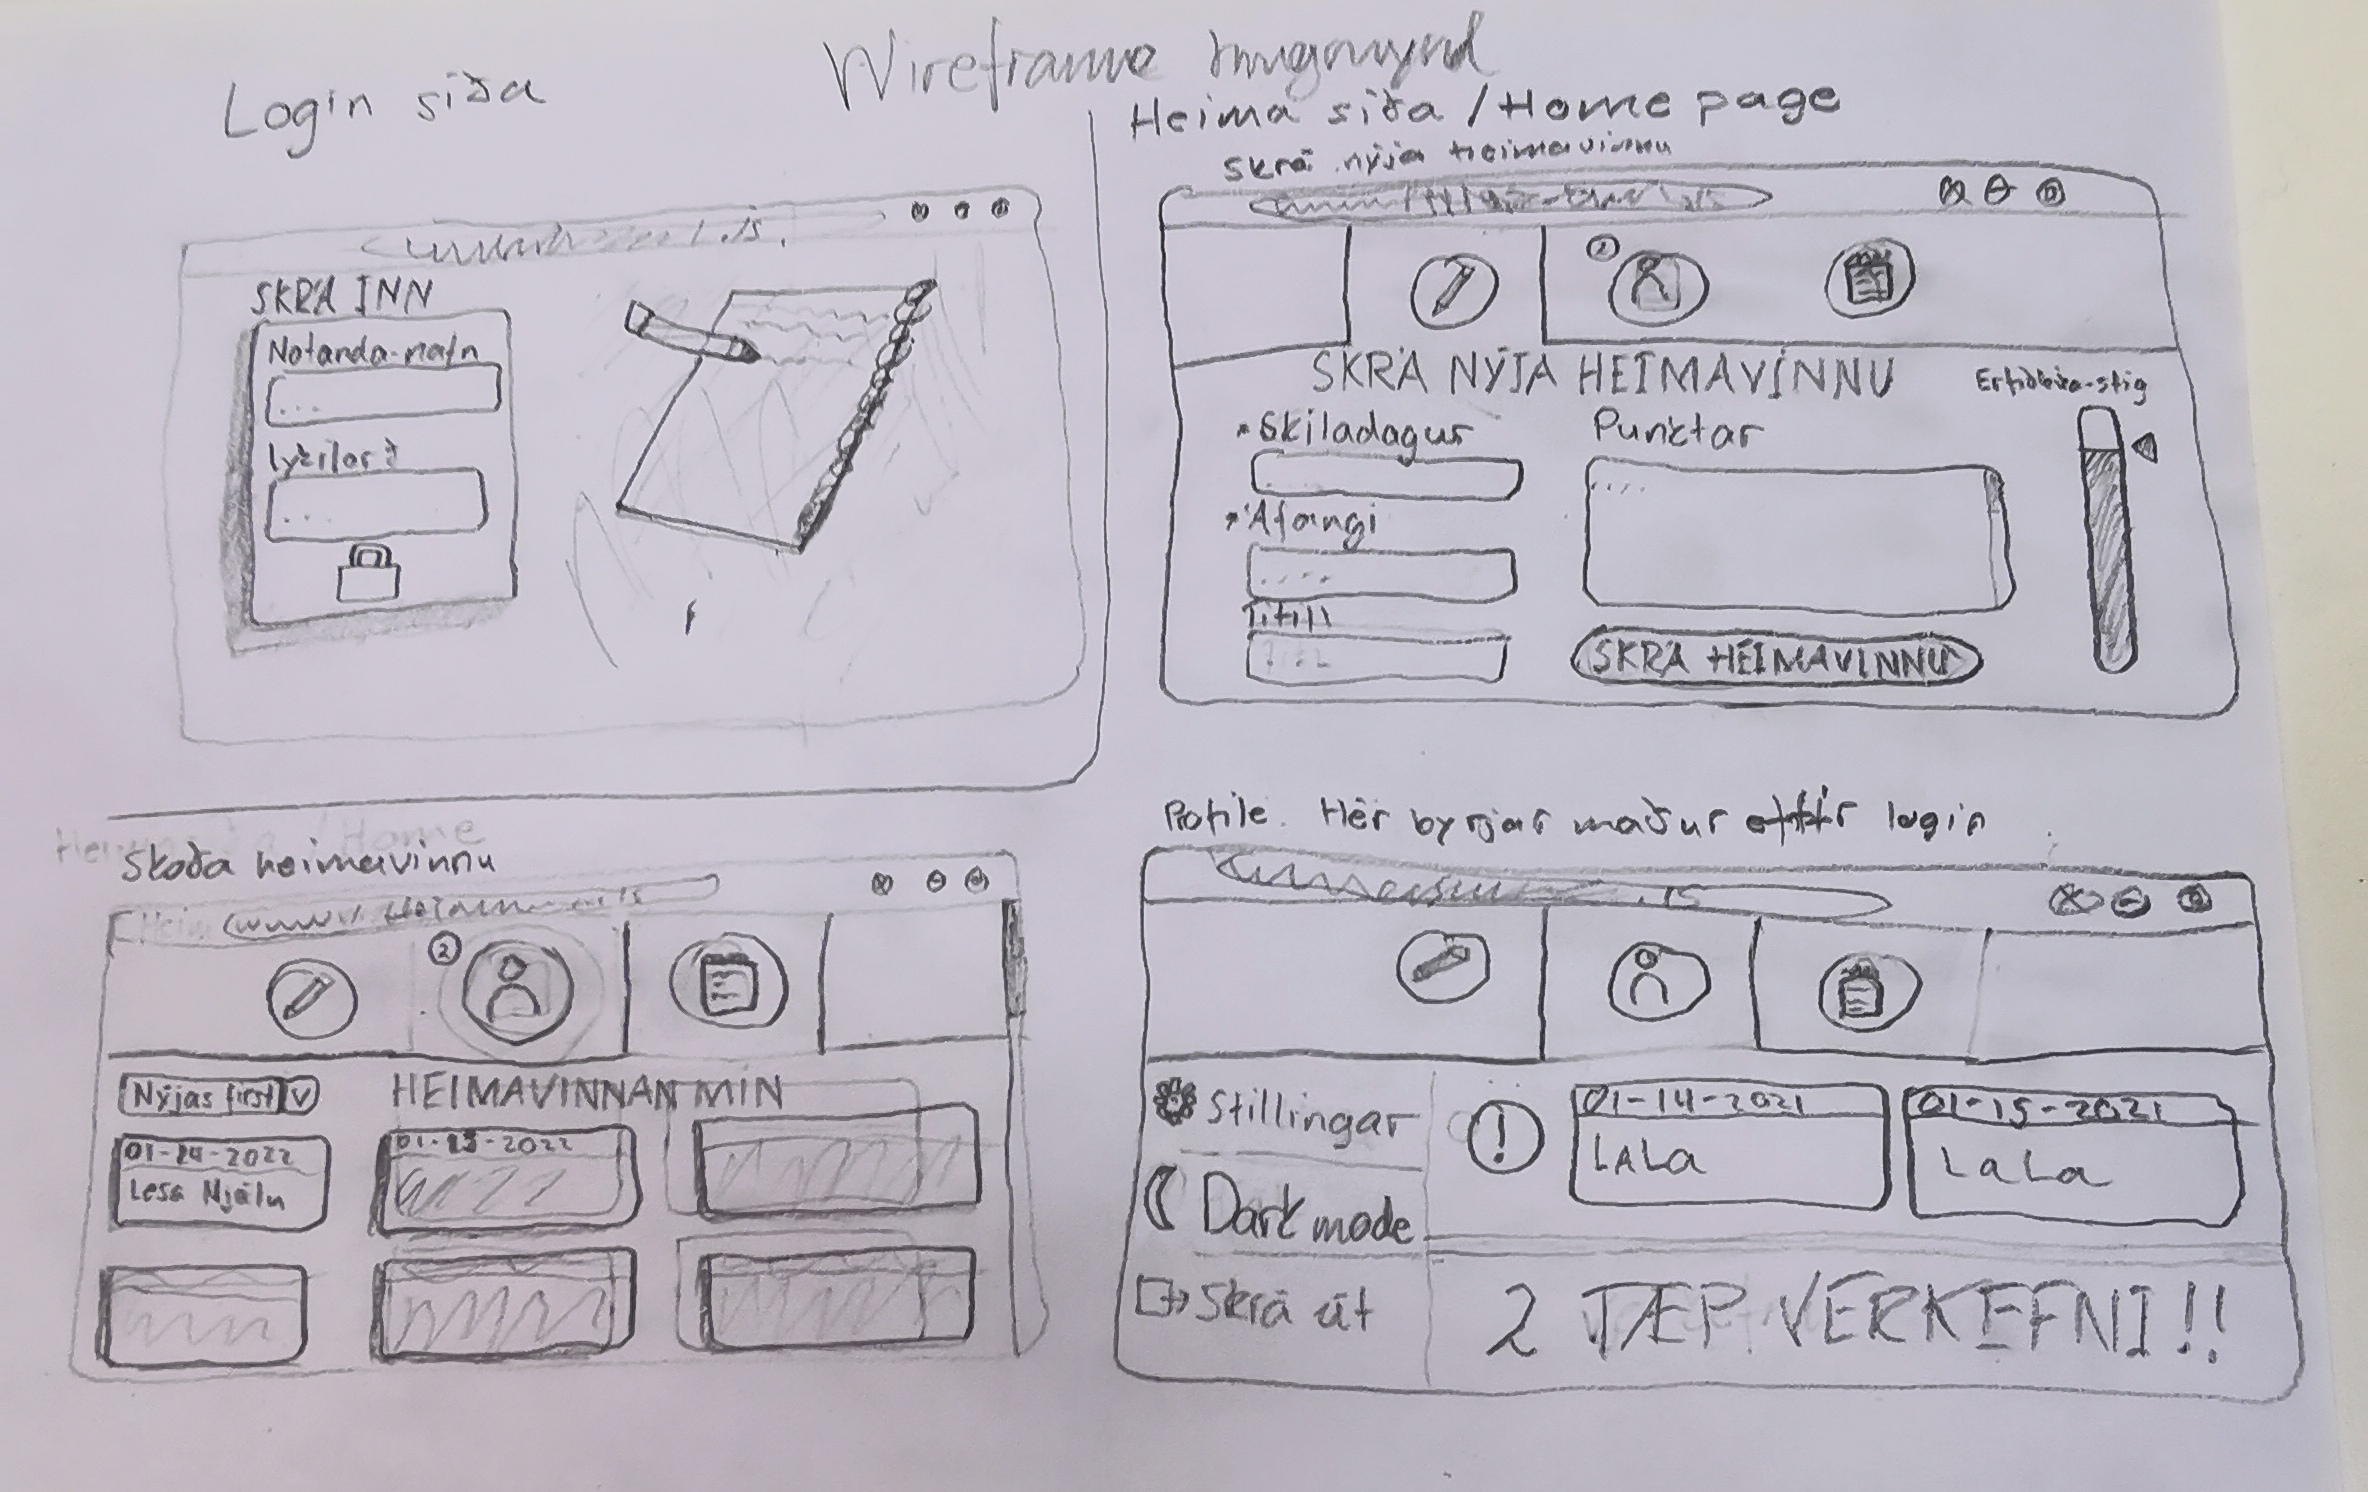 Wireframe hugmynd
Login síða
SKRÁ INN
Notanda-nafn
...
lykilorð
...
Heima síða / Home page
skrá nýja heimavinnu
2
SKRÁ NÝJA HEIMAVINNU
Erfiðleika-stig
* Skiladagur
Punktar
....
* Áfangi
....
Titill
SKRÁ HEIMAVINNU
Heimasíða / Home
Skoða heimavinnu
2
Nýjas first v
HEIMAVINNAN MÍN
01-14-2022
Lesa Njálu
01-15-2022
Profile. Hér byrjar maður eftir login
.is
Stillingar
Dark mode
Skrá út
!
01-14-2021
LALa
01-15-2021
LaLa
2 TÆP VERKEFNI!!